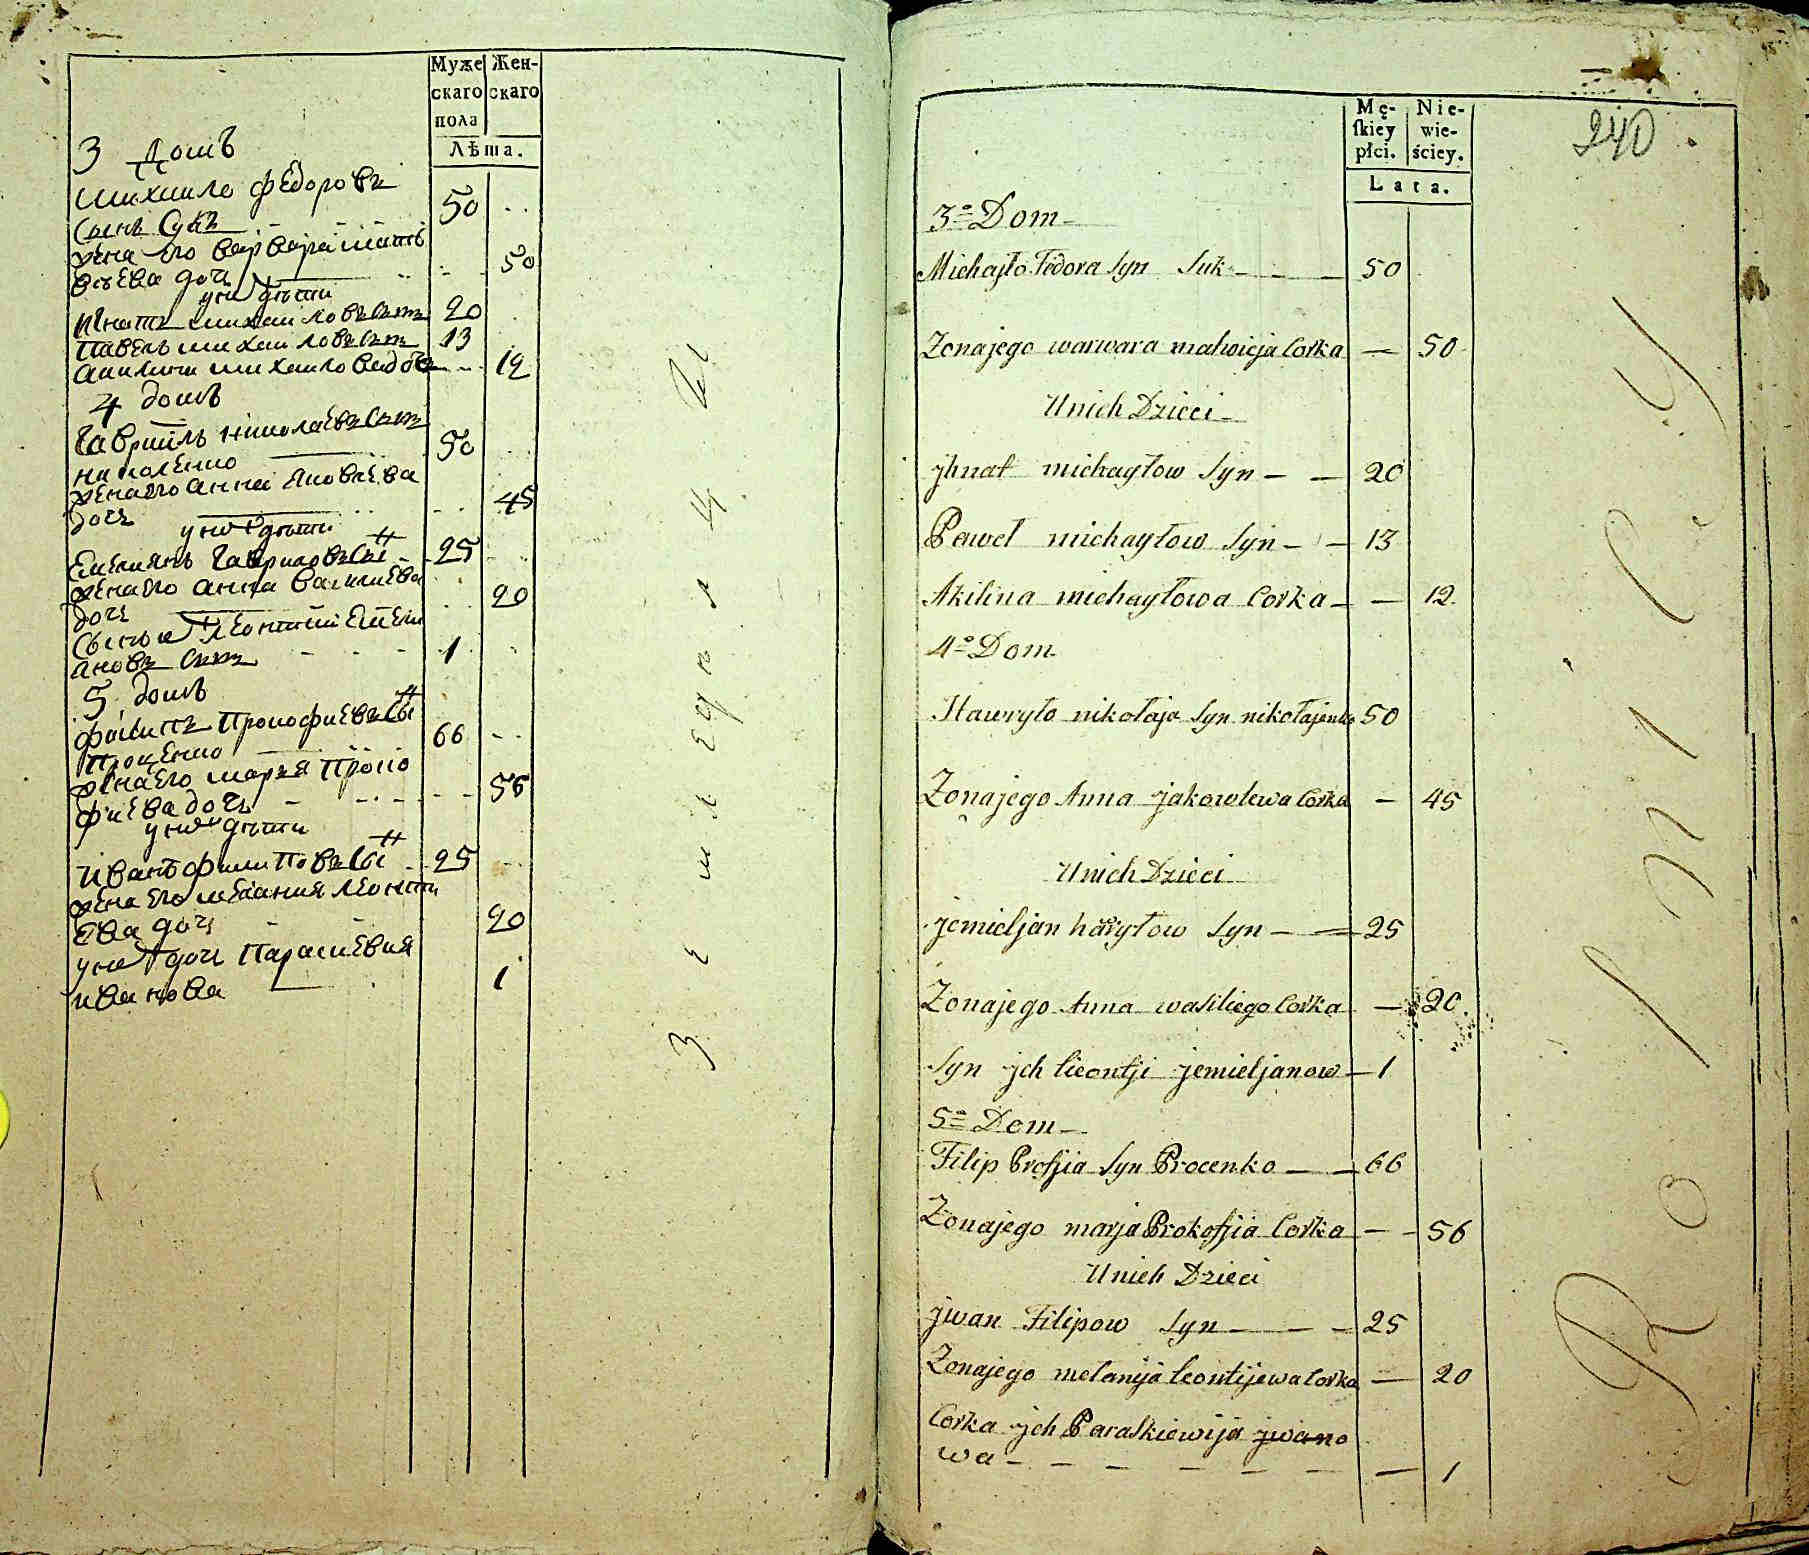 Муже Жен-
скаго скаго
пола
Лѣта.
3 домъ
Михаило Федоровъ
сынъ Сукъ - - - 50
жена его Варвара Матъ
вѣева дочь - - 50
у нихъ дѣти
Игнатъ Михаиловъ сынъ 20
Павелъ Михаиловъ сынъ 13
Акилина Михаилова дочь - - 12
4 домъ
Гавриилъ Николаевъ сынъ 50
Николенко
жена его Анна Яковлева
дочь - - 45
у нихъ дѣти
Емелиянъ Гавриловъ сынъ - 25
жена его Анна Василиева
дочь - - 20
сынъ ихъ Леонтий Емели
ановъ сынъ - - - 1
5 домъ
Филипъ Прокофиевъ сынъ 66
Проценко
жена его Мария Проко
фиева дочь - - - - - 56
у нихъ дѣти
Иванъ Филиповъ сынъ - 25
жена его Мелания Леонти
ева дочь - - 20
у нихъ дочь Параскевия
Иванова 1
Земледѣлцы
240
Mę- Nie-
skiey wie-
płci. ściey.
Lata.
3º Dom
Michayło Fedora Syn Suk - - - 50
Zona jego warwara matwieja Corka — 50
U nich Dzieci
jhnat michayłow Syn — — 20
Paweł michayłow Syn — — 13
Akilina michayłowa Corka — — 12
4º Dom
Hawryło nikołaja Syn nikołajenko 50
Zona jego Anna jakowlewa Corka — 45
U nich Dzieci
jemieljan hawryłow Syn — — 25
Zona jego Anna wasiliego Corka — 20
Syn jch lieontji jemieljanow — 1
5º Dom
Filip Profjia Syn Procenko — — 66
Zona jego marja Prokofjia Corka — - 56
U nich Dzieci
jwan Filipow Syn - - - 25
Zona jego melanija leontijewa Corka — 20
Corka jch Paraskiewija jwano
wa - - - - - - — 1
Rolnicy